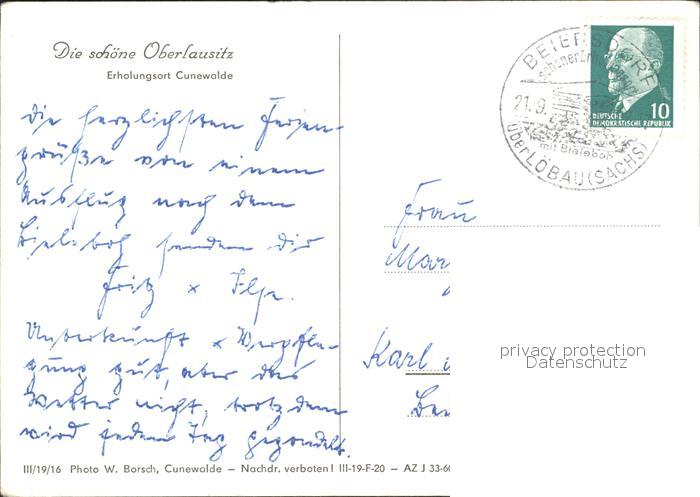 Die schöne Oberlausitz
Erholungsort Cunewalde
die herzlichsten Ferien-
grüße von einem
Ausflug nach dem
Bieleboh senden dir
Fritz x Ilse.
Unterkunft x Verpfle-
gung gut, aber das
Wetter nicht, trotzdem
wird jeden Tag gegondelt.
III/19/16 Photo W. Borsch, Cunewalde – Nachdr. verboten! III-19-F-20 – AZ J 33-60
BEIERSDORF
schöner
21.9.
mit Bieleboh
über LÖBAU (SACHS)
10
DEUTSCHE
DEMOKRATISCHE REPUBLIK
Frau
Mar
Karl
privacy protection
Datenschutz